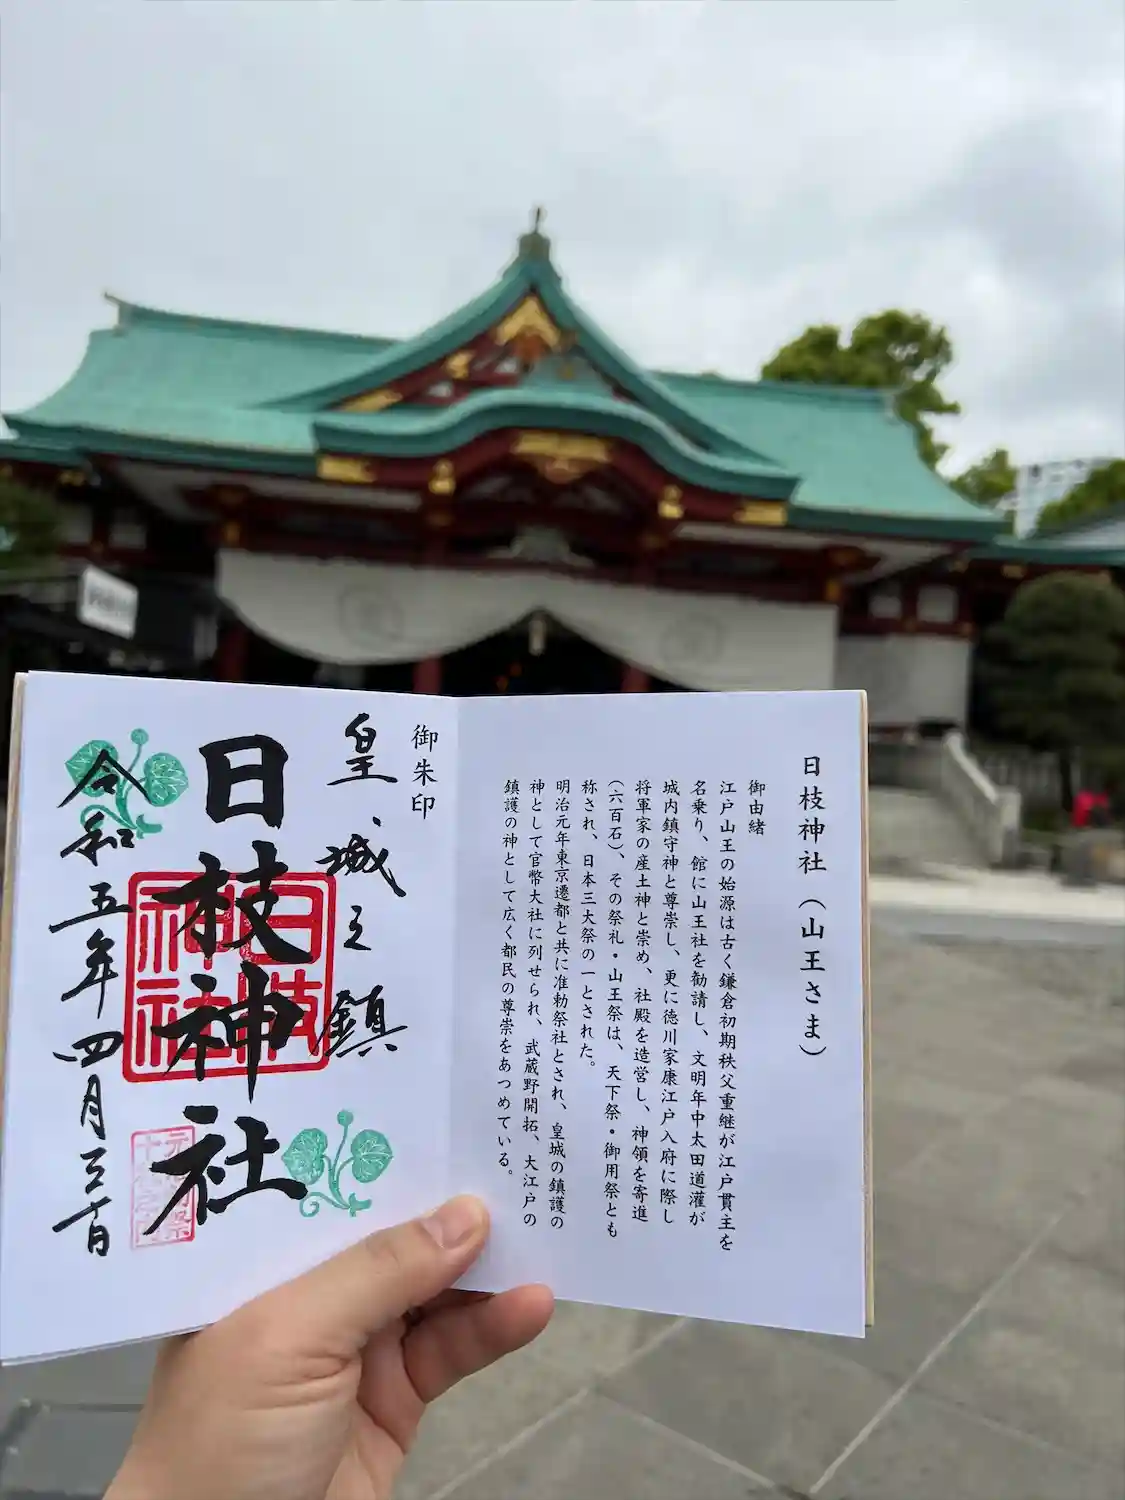 日枝神社（山王さま）
御由緒
江戸山王の始源は古く鎌倉初期秩父重継が江戸貫主を
名乗り、館に山王社を勧請し、文明年中太田道灌が
城内鎮守神と尊崇し、更に徳川家康江戸入府に際し
将軍家の産土神と崇め、社殿を造営し、神領を寄進
（六百石）、その祭礼・山王祭は、天下祭・御用祭とも
称され、日本三大祭の一とされた。
明治元年東京遷都と共に准勅祭社とされ、皇城の鎮護の
神として官幣大社に列せられ、武蔵野開拓、大江戸の
鎮護の神として広く都民の尊崇をあつめている。
御朱印
皇城之鎮
日枝神社
日枝神社
令和五年四月三十日